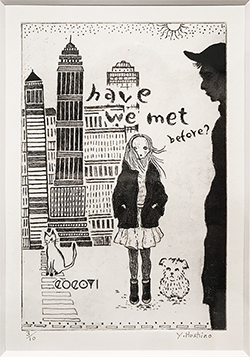 have
we met
before?
cocoti
3/10
Y. Hoshino